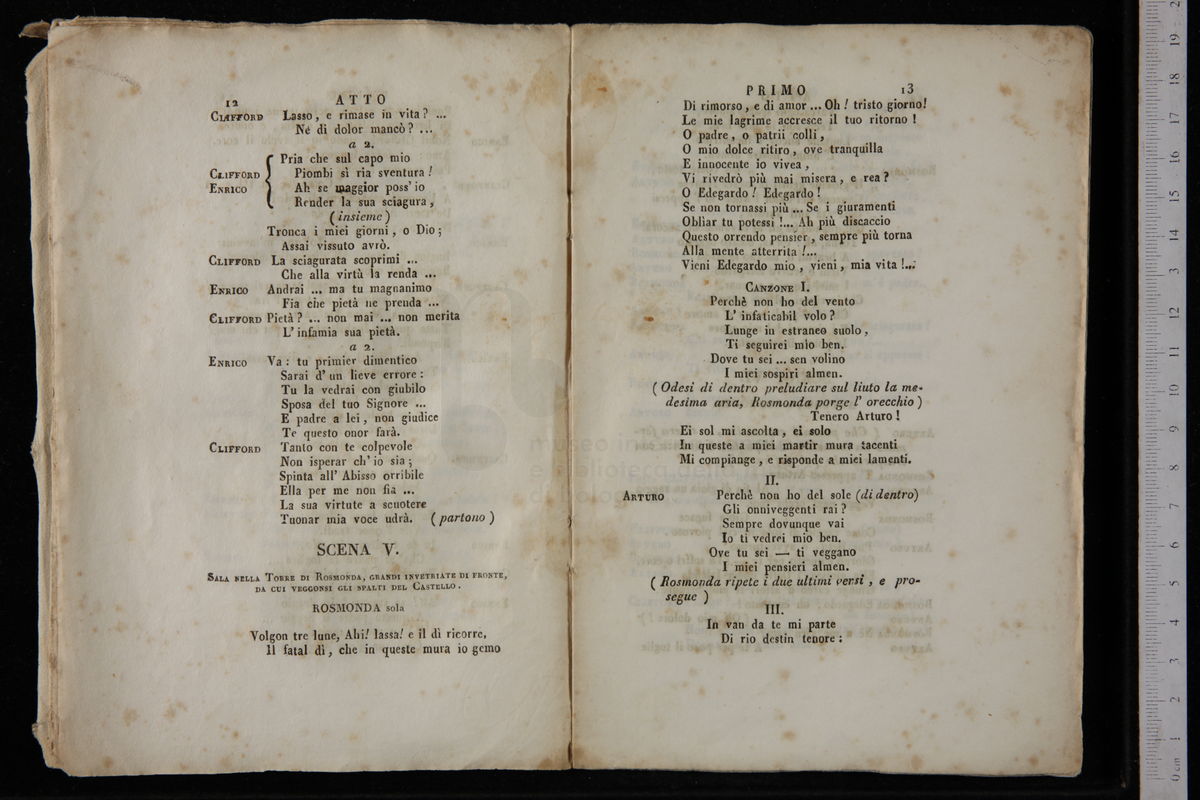 12 ATTO
CLIFFORD Lasso, e rimase in vita? ...
Nè di dolor mancò? ...
a 2.
Pria che sul capo mio
CLIFFORD Piombi sì ria sventura!
ENRICO Ah se maggior poss' io
Render la sua sciagura,
(insieme)
Tronca i miei giorni, o Dio;
Assai vissuto avrò.
CLIFFORD La sciagurata scoprimi ...
Che alla virtù la renda ...
ENRICO Andrai ... ma tu magnanimo
Fia che pietà ne prenda ...
CLIFFORD Pietà? ... non mai ... non merita
L' infamia sua pietà.
a 2.
ENRICO Va: tu primier dimentico
Sarai d' un lieve errore:
Tu la vedrai con giubilo
Sposa del tuo Signore ...
E padre a lei, non giudice
Te questo onor farà.
CLIFFORD Tanto con te colpevole
Non isperar ch' io sia;
Spinta all' Abisso orribile
Ella per me non fia ...
La sua virtute a scuotere
Tuonar mia voce udrà. (partono)
SCENA V.
SALA NELLA TORRE DI ROSMONDA, GRANDI INVETRIATE DI FRONTE,
DA CUI VEGGONSI GLI SPALTI DEL CASTELLO.
ROSMONDA sola
Volgon tre lune, Ahi! lassa! e il dì ricorre,
Il fatal dì, che in queste mura io gemo
PRIMO 13
Di rimorso, e di amor ... Oh! tristo giorno!
Le mie lagrime accresce il tuo ritorno!
O padre, o patrii colli,
O mio dolce ritiro, ove tranquilla
E innocente io vivea,
Vi rivedrò più mai misera, e rea?
O Edegardo! Edegardo!
Se non tornassi più ... Se i giuramenti
Obliar tu potessi!... Ah più discaccio
Questo orrendo pensier, sempre più torna
Alla mente atterrita!...
Vieni Edegardo mio, vieni, mia vita!...
CANZONE I.
Perchè non ho del vento
L' infaticabil volo?
Lunge in estraneo suolo,
Ti seguirei mio ben.
Dove tu sei ... sen volino
I miei sospiri almen.
(Odesi di dentro preludiare sul liuto la me-
desima aria, Rosmonda porge l' orecchio)
Tenero Arturo!
Ei sol mi ascolta, ei solo
In queste a miei martir mura tacenti
Mi compiange, e risponde a miei lamenti.
II.
ARTURO Perchè non ho del sole (di dentro)
Gli onniveggenti rai?
Sempre dovunque vai
Io ti vedrei mio ben.
Ove tu sei — ti veggano
I miei pensieri almen.
(Rosmonda ripete i due ultimi versi, e pro-
segue)
III.
In van da te mi parte
Di rio destin tenore: